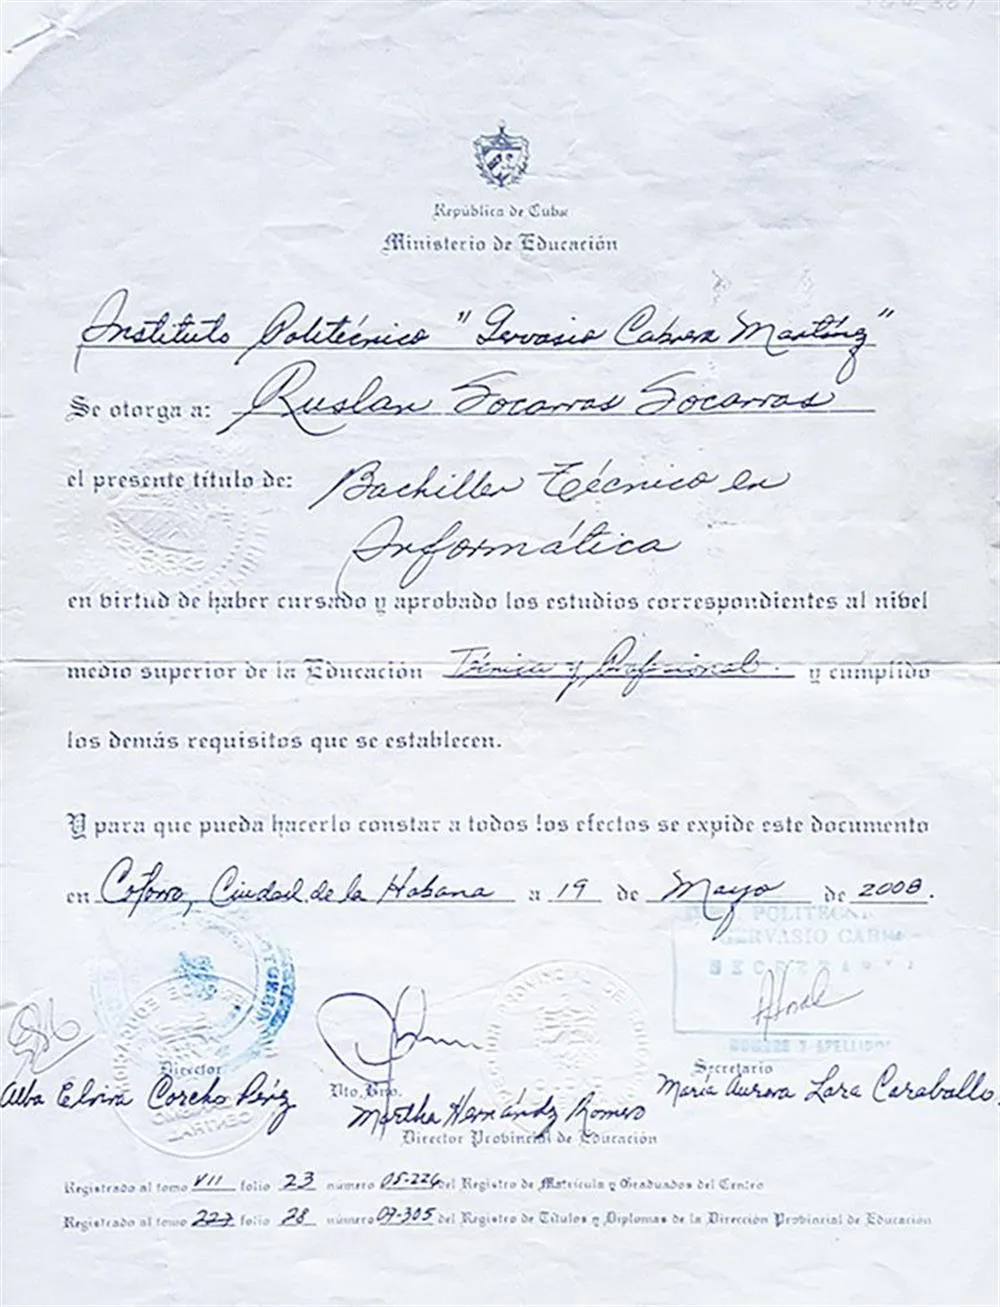 República de Cuba
Ministerio de Educación
Instituto Politécnico "Gervasio Cabrera Martínez"
Se otorga a: Ruslan Socarras Socarras
el presente título de: Bachiller Técnico en
Informática
en virtud de haber cursado y aprobado los estudios correspondientes al nivel
medio superior de la Educación Técnica y Profesional. y cumplido
los demás requisitos que se establecen.
Y para que pueda hacerlo constar a todos los efectos se expide este documento
en Cotorro, Ciudad de la Habana a 19 de Mayo de 2008.
POLITECN
GERVASIO CABR
SECRETARIA
NOMBRE Y APELLIDOS
Director
Vto. Bno.
Secretario
Alba Elvira Corcho Pérez
Martha Hernández Romero
María Aurora Lara Caraballo.
Director Provincial de Educación
Registrado al tomo VII folio 23 número 05-226 del Registro de Matrícula y Graduados del Centro
Registrado al tomo 227 folio 28 número 07-305 del Registro de Títulos y Diplomas de la Dirección Provincial de Educación